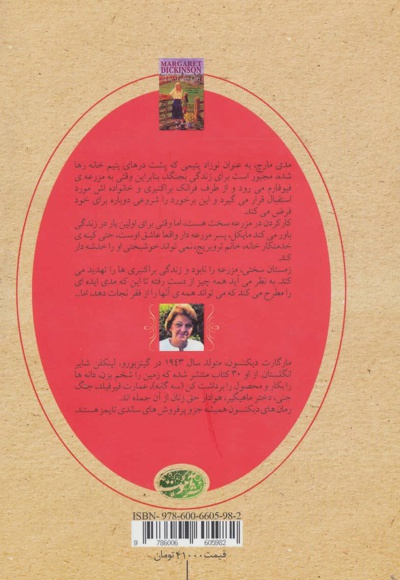 MARGARET
DICKINSON
مدی مارچ، به عنوان نوزاد یتیمی که پشت درهای یتیم خانه رها
شده، مجبور است برای زندگی بجنگد، بنابراین وقتی به مزرعه ی
فیوفارم می رود و از طرف فرانک براکنبری و خانواده اش مورد
استقبال قرار می گیرد و این برخورد را شروعی دوباره برای خود
فرض می کند.
کارکردن در مزرعه سخت هست، اما وقتی برای اولین بار در زندگی
باور می کند مایکل، پسر مزرعه دار واقعا عاشق اوست، حتی کینه ی
خدمتکار خانه، خانم تروبریج، نمی تواند خوشبختی او را خدشه دار
کند.
زمستان سختی، مزرعه را نابود و زندگی براکنبری ها را تهدید می
کند. به نظر می آید همه چیز از دست رفته تا این که مدی ایده ای
را مطرح می کند که می تواند همه ی آنها را از فقر نجات دهد، اما...
مارگارت دیکنسون، متولد سال ۱۹۴۲ در گینزبورو، لینکلن شایر
انگلستان. از او ۳۰ کتاب منتشر شده که زمین را شخم بزن، دانه ها
را بکار و محصول را برداشت کن (سه گانه)، عمارت فیرفیلد، جنگ
جنی، دختر ماهیگیر، هوادار حق زنان از آن جمله اند.
رمان های دیکنسون همیشه جزو پرفروش های ساندی تایمز هستند.
ISBN- 978-600-6605-98-2
9 786006 605982
قیمت ۴۱۰۰۰ تومان